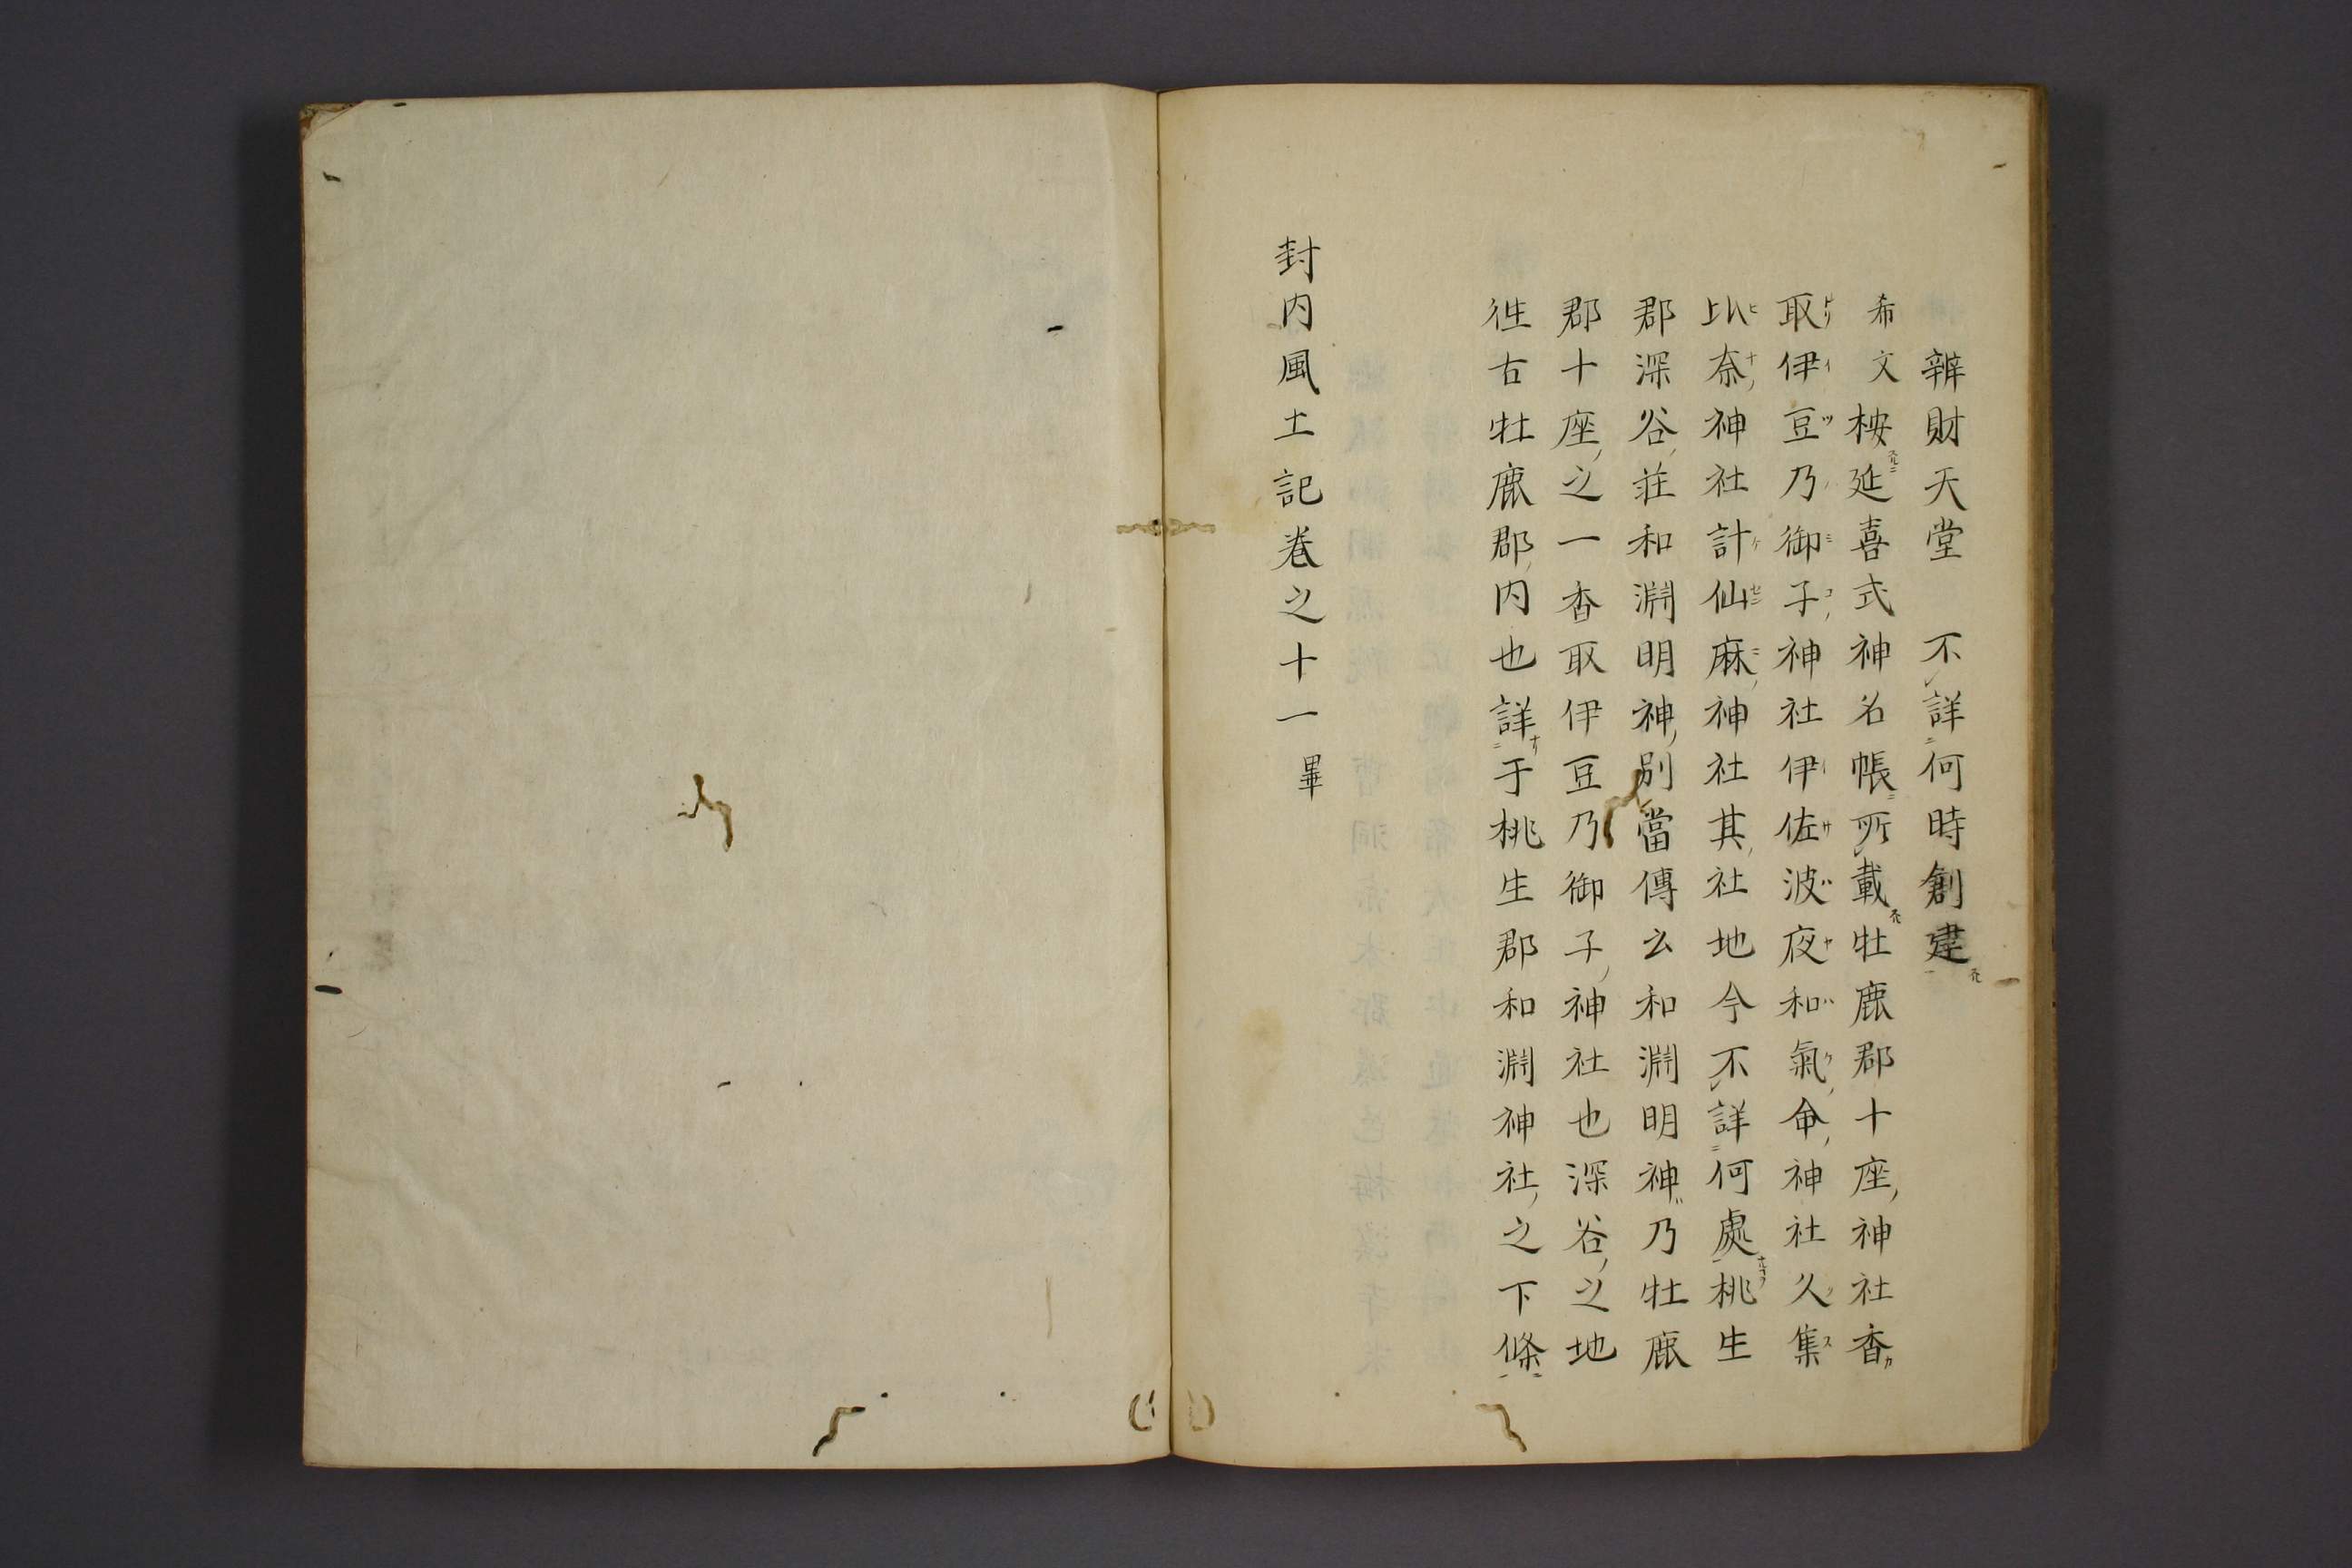 辧財天堂　不詳何時創建
希文桉延喜式神名帳所載牡鹿郡十座神社香
取伊豆乃御子神社伊佐波夜和氣命神社久集
比奈神社計仙麻神社其社地今不詳何處桃生
郡深谷荘和渕明神別當傳云和渕明神乃牡鹿
郡十座之一香取伊豆乃御子神社也深谷之地
徃古牡鹿郡内也詳于桃生郡和渕神社之下條
封内風土記巻之十一畢